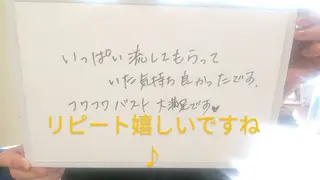 いっぱい流してもらって
いた気持ち良かったです。
フワフワバスト大満足です♥
リピート嬉しいですね
♪